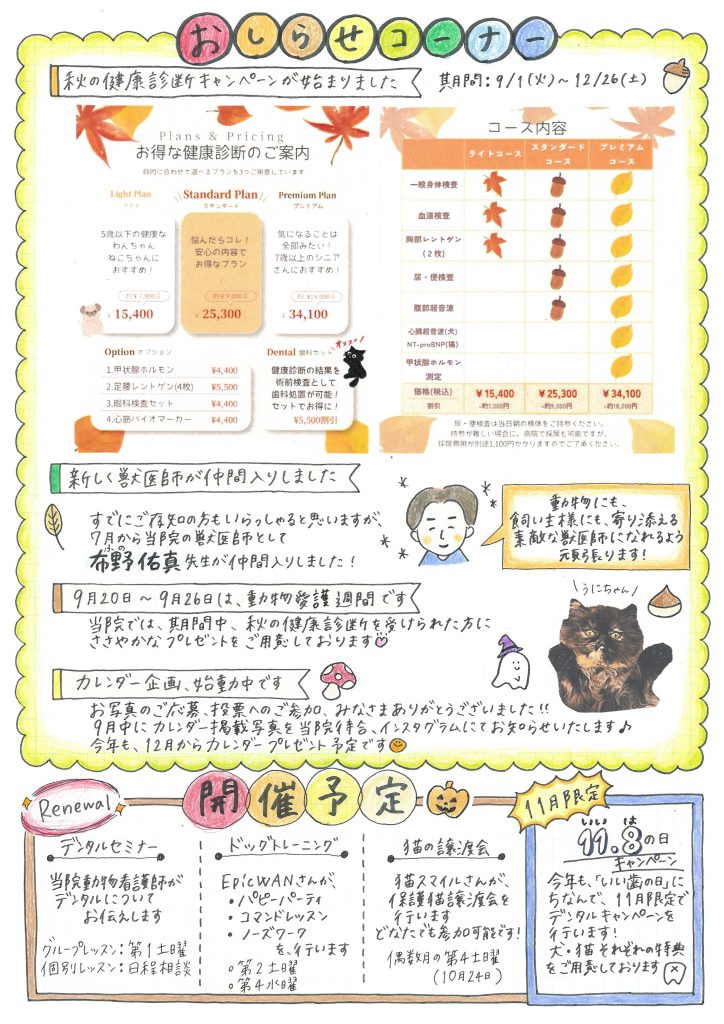 おしらせコーナー
秋の健康診断キャンペーンが始まりました
期間：9/1(火)～12/26(土)
Plans & Pricing
お得な健康診断のご案内
目的に合わせて選べるプランを3つご用意しています
Light Plan
ライト
5歳以下の健康な
わんちゃん
ねこちゃんに
おすすめ！
約￥7,000お得
¥ 15,400
Standard Plan
スタンダード
悩んだらコレ！
安心の内容で
お得なプラン
約￥9,000お得
¥ 25,300
Premium Plan
プレミアム
気になることは
全部みたい！
7歳以上のシニア
さんにおすすめ！
約￥18,000お得
¥ 34,100
Option オプション
1.甲状腺ホルモン ¥4,400
2.足腰レントゲン(4枚) ¥5,500
3.眼科検査セット ¥4,400
4.心筋バイオマーカー ¥4,400
Dental 歯科セット
健康診断の結果を
術前検査として
歯科処置が可能！
セットでお得に！
¥5,500割引
コース内容
ライトコース
スタンダード
コース
プレミアム
コース
一般身体検査
血液検査
胸部レントゲン
(2枚)
尿・便検査
腹部超音波
心臓超音波(犬)
NT-proBNP(猫)
甲状腺ホルモン
測定
価格(税込) ￥15,400 ￥25,300 ￥34,100
割引 -約7,000円 -約9,000円 -約18,000円
尿・便検査は当日朝の検体をご持参ください。
持参が難しい場合に、病院で採尿も可能ですが、
採尿費用が別途1,100円かかりますのでご了承ください。
新しく獣医師が仲間入りしました
すでにご存知の方もいらっしゃると思いますが、
7月から当院の獣医師として
ふの
布野 佑真 先生が仲間入りしました！
動物にも、
飼い主様にも、寄り添える
素敵な獣医師になれるよう
頑張ります！
9月20日～9月26日は、動物愛護週間です
当院では、期間中、秋の健康診断を受けられた方に
ささやかなプレゼントをご用意しております
うにちゃん
カレンダー企画、始動中です
お写真のご応募、投票へのご参加、みなさまありがとうございました!!
9月中にカレンダー掲載写真を当院待合、インスタグラムにてお知らせいたします♪
今年も、12月からカレンダープレゼント予定です
Renewal
開催予定
デンタルセミナー
当院動物看護師が
デンタルについて
お伝えします
グループレッスン：第1土曜
個別レッスン：日程相談
ドッグトレーニング
EpicWANさんが、
・パピーパーティ
・コマンドレッスン
・ノーズワーク
を、行います
○第2土曜
○第4水曜
猫の譲渡会
猫スマイルさんが、
保護猫譲渡会を
行います
どなたでも参加可能です！
偶数月の第4土曜
(10月24日)
11月限定
いい は
11.8の日
キャンペーン
今年も、「いい歯の日」に
ちなんで、11月限定で
デンタルキャンペーンを
行います！
犬・猫それぞれの特典
をご用意しております